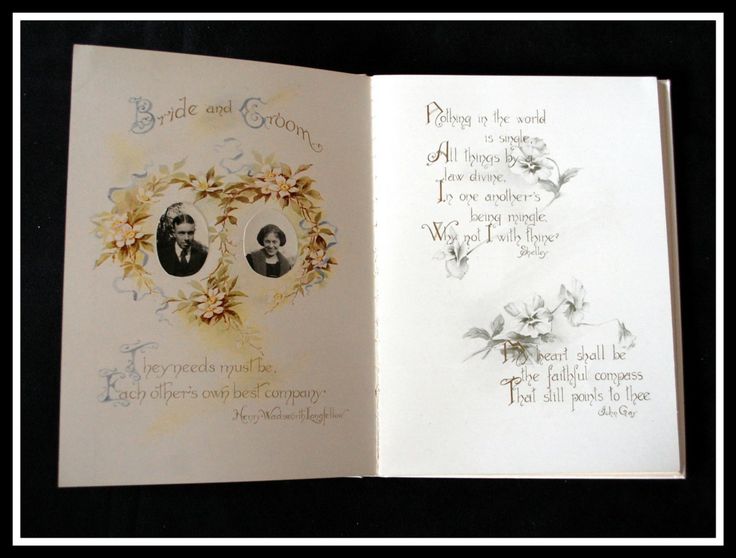 Bride and Groom
They needs must be,
Each other's own best company.
Henry Wadsworth Longfellow
Nothing in the world
is single,
All things by a
law divine,
In one another's
being mingle,
Why not I with thine?
Shelley
My heart shall be
the faithful compass
That still points to thee
John Gay